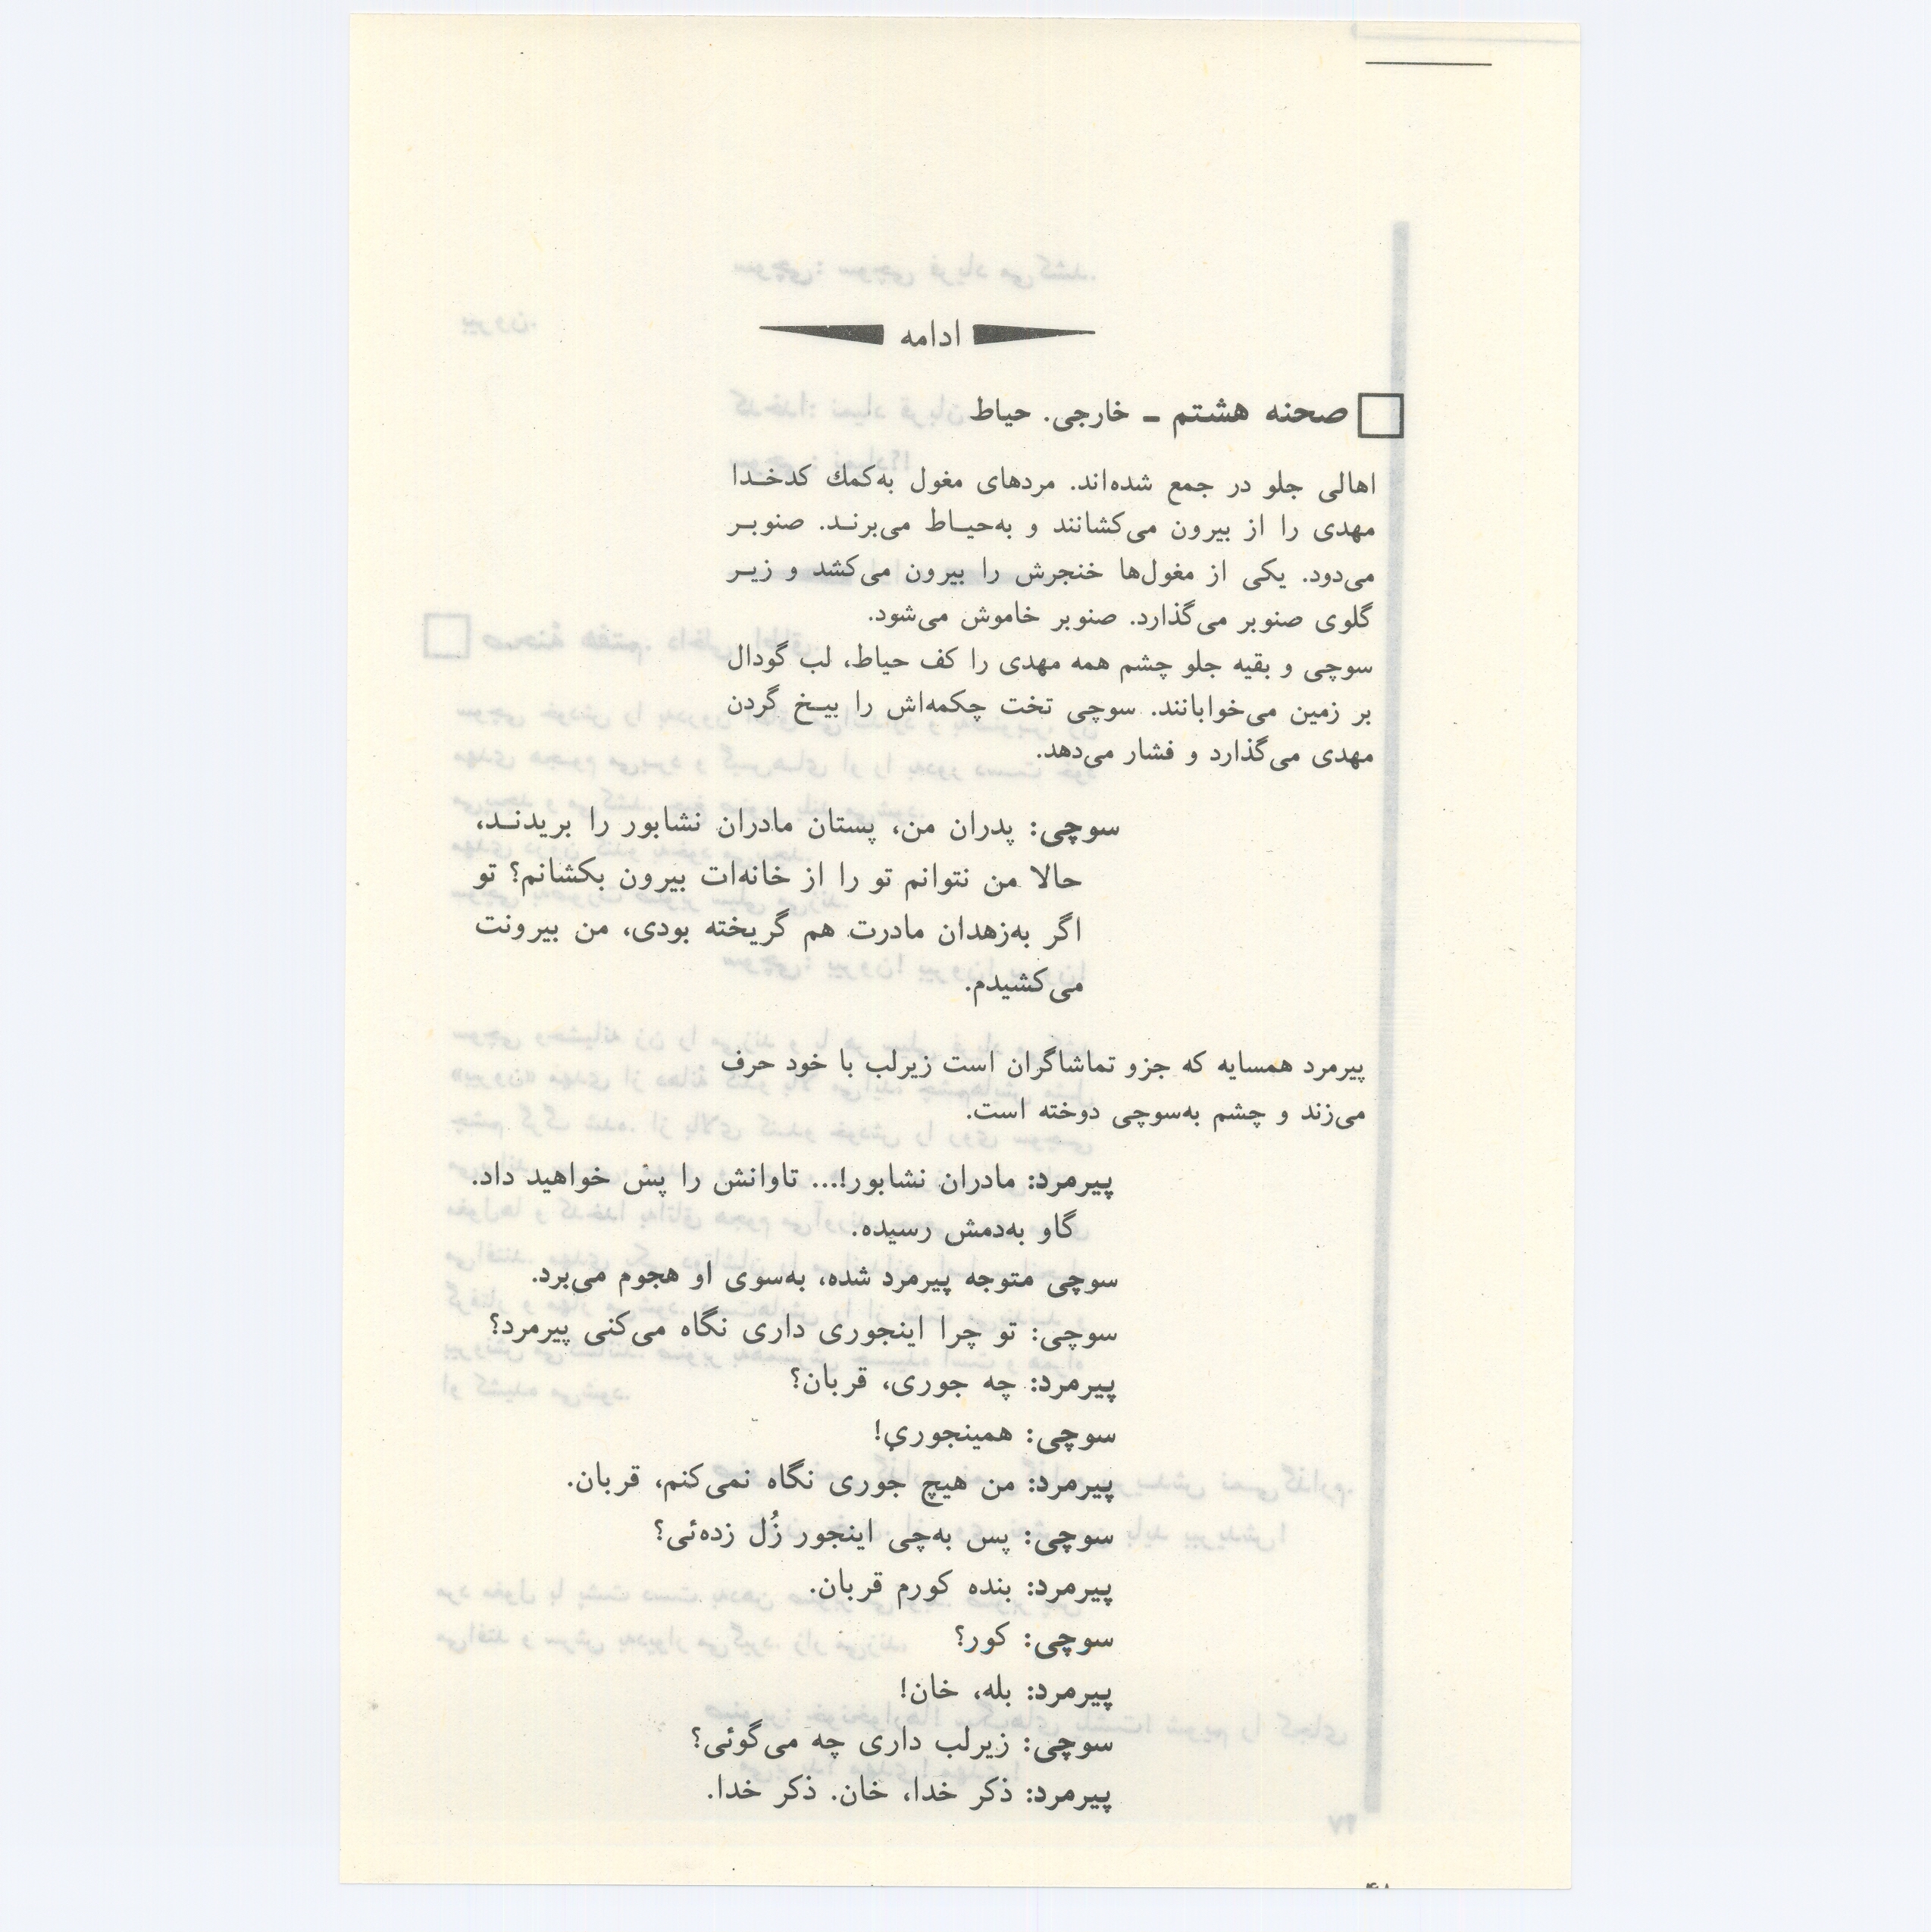 ادامه
صحنه هشتم ـ خارجی. حیاط
اهالی جلو در جمع شده‌اند. مردهای مغول به‌کمك کدخـدا
مهدی را از بیرون می‌کشانند و به‌حیـاط می‌برنـد. صنوبـر
می‌دود. یکی از مغول‌ها خنجرش را بیرون می‌کشد و زیـر
گلوی صنوبر می‌گذارد. صنوبر خاموش می‌شود.
سوچی و بقیه جلو چشم همه مهدی را کف حیاط، لب گودال
بر زمین می‌خوابانند. سوچی تخت چکمه‌اش را بیـخ گردن
مهدی می‌گذارد و فشار می‌دهد.
سوچی: پدران من، پستان مادران نشابور را بریدنـد،
حالا من نتوانم تو را از خانه‌ات بیرون بکشانم؟ تو
اگر به‌زهدان مادرت هم گریخته بودی، من بیرونت
می‌کشیدم.
پیرمرد همسایه که جزو تماشاگران است زیرلب با خود حرف
می‌زند و چشم به‌سوچی دوخته است.
پیرمرد: مادران نشابور!... تاوانش را پس خواهید داد.
گاو به‌دمش رسیده.
سوچی متوجه پیرمرد شده، به‌سوی او هجوم می‌برد.
سوچی: تو چرا اینجوری داری نگاه می‌کنی پیرمرد؟
پیرمرد: چه جوری، قربان؟
سوچی: همینجوری!
پیرمرد: من هیچ جوری نگاه نمی‌کنم، قربان.
سوچی: پس به‌چی اینجور زُل زده‌ئی؟
پیرمرد: بنده کورم قربان.
سوچی: کور؟
پیرمرد: بله، خان!
سوچی: زیرلب داری چه می‌گوئی؟
پیرمرد: ذکر خدا، خان. ذکر خدا.